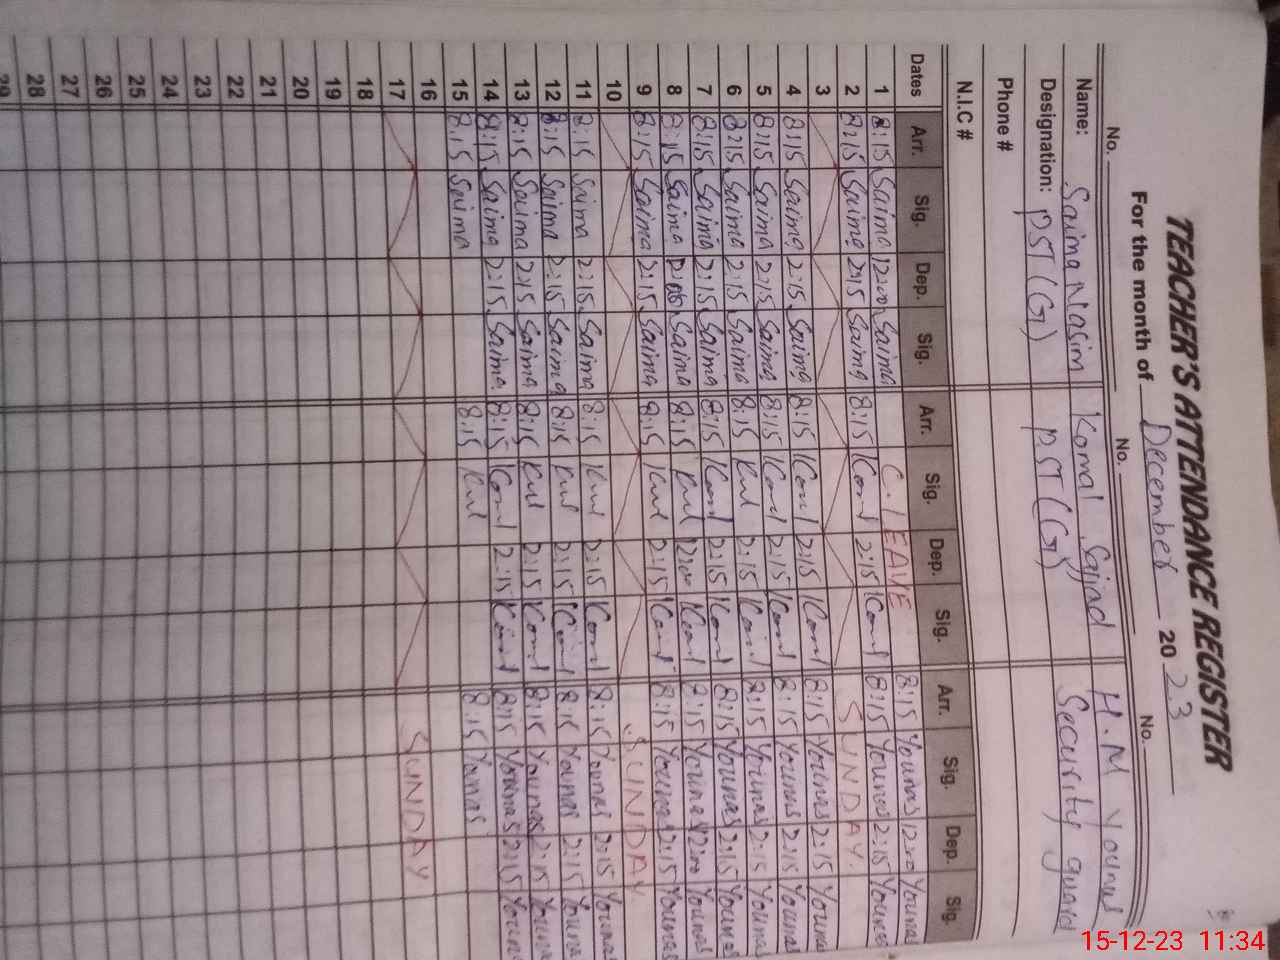 TEACHER'S ATTENDANCE REGISTER
For the month of December 2023
No. No. No.
Name: Saima Nasim Komal Sajjad H.M Younus
Designation: PST (G) PST (G) Security guard
Phone #
N.I.C #
Dates Arr. Sig. Dep. Sig. Arr. Sig. Dep. Sig. Arr. Sig. Dep. Sig.
1 8:15 Saima 12:00 Saima C.LEAVE 8:15 Younas 12:00 Younas
2 8:15 Saima 2:15 Saima 8:15 2:15 8:15 Younas 2:15 Younas
3 SUNDAY
4 8:15 Saima 2:15 Saima 8:15 2:15 8:15 Younas 2:15 Younas
5 8:15 Saima 2:15 Saima 8:15 2:15 8:15 Younas 2:15 Younas
6 8:15 Saima 2:15 Saima 8:15 2:15 8:15 Younas 2:15 Younas
7 8:15 Saima 2:15 Saima 8:15 2:15 8:15 Younas 2:15 Younas
8 8:15 Saima Saima 8:15 12:00 8:15 Younas 12:00 Younas
9 8:15 Saima 2:15 Saima 8:15 2:15 8:15 Younas 2:15 Younas
10 SUNDAY
11 8:15 Saima 2:15 Saima 8:15 2:15 8:15 Younas 2:15 Younas
12 8:15 Saima 2:15 Saima 8:15 2:15 8:15 Younas 2:15 Younas
13 8:15 Saima 2:15 Saima 8:15 2:15 8:15 Younas 2:15 Younas
14 8:15 Saima 2:15 Saima 8:15 2:15 8:15 Younas 2:15 Younas
15 8:15 Saima 8:15 8:15 Younas
16
17 SUNDAY
18
19
20
21
22
23
24
25
26
27
28
29
15-12-23 11:34